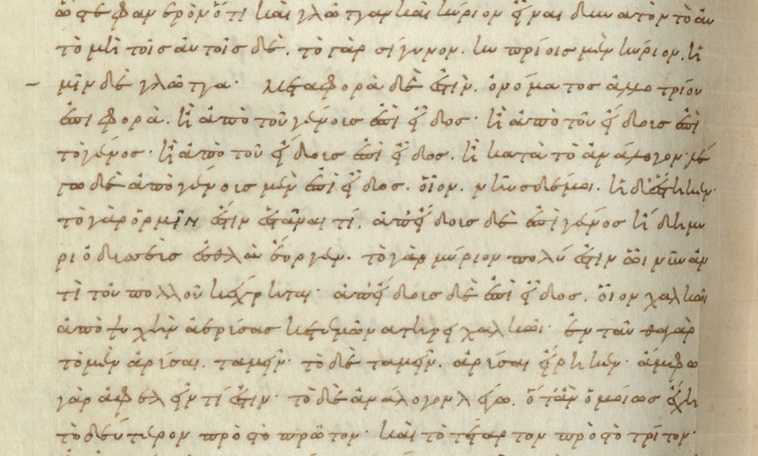 ὥστε φανερὸν ὅτι καὶ γλῶτταν καὶ κύριον εἶναι δυνατὸν τὸ αὐ
τὸ μὴ τοῖς αὐτοῖς δὲ. τὸ γὰρ σίγυνον. κυπρίοις μὲν κύριον. ἡ
μῖν δὲ γλῶττα· μεταφορὰ δέ ἐστιν. ὀνόματος ἀλλοτρίου
ἐπιφορὰ. ἢ ἀπὸ τοῦ γένους ἐπὶ εἶδος· ἢ ἀπὸ τοῦ εἴδους ἐπὶ
τὸ γένος· ἢ ἀπὸ τοῦ εἴδους ἐπὶ εἶδος. ἢ κατὰ τὸ ἀνάλογον· λέ
γω δὲ ἀπὸ γένους μὲν ἐπὶ εἶδος. οἷον. νηῦς δέ μοι. ἥδ' ἕστηκεν·
τὸ γὰρ ὁρμεῖν ἐστὶν ἑστάναι τί. ἀπ' εἴδους δὲ ἐπὶ γένος ἢ δὴ μυ
ρί ὀδυσσεὺς ἐσθλὰ ἔοργεν. τὸ γὰρ μύριον πολύ ἐστιν ὧι νῦν ἀν
τὶ τοῦ πολλοῦ κέχρηται· ἀπ' εἴδους δὲ ἐπὶ εἶδος. οἷον χαλκῶι
ἀπὸ ψυχὴν ἀερύσας χαλκῶι· ἐνταῦθα γὰρ
τὸ μὲν ἀρύσαι. ταμεῖν· τὸ δὲ ταμεῖν. ἀρύσαι εἴρηκεν· ἄμφω
γὰρ ἀφελεῖν τί ἐστιν· τὸ δὲ ἀνάλογον λέγω. ὅταν ὁμοίως ἔχη
τὸ δεύτερον πρὸς τὸ πρῶτον· καὶ τὸ τέταρτον πρὸς τὸ τρίτον·